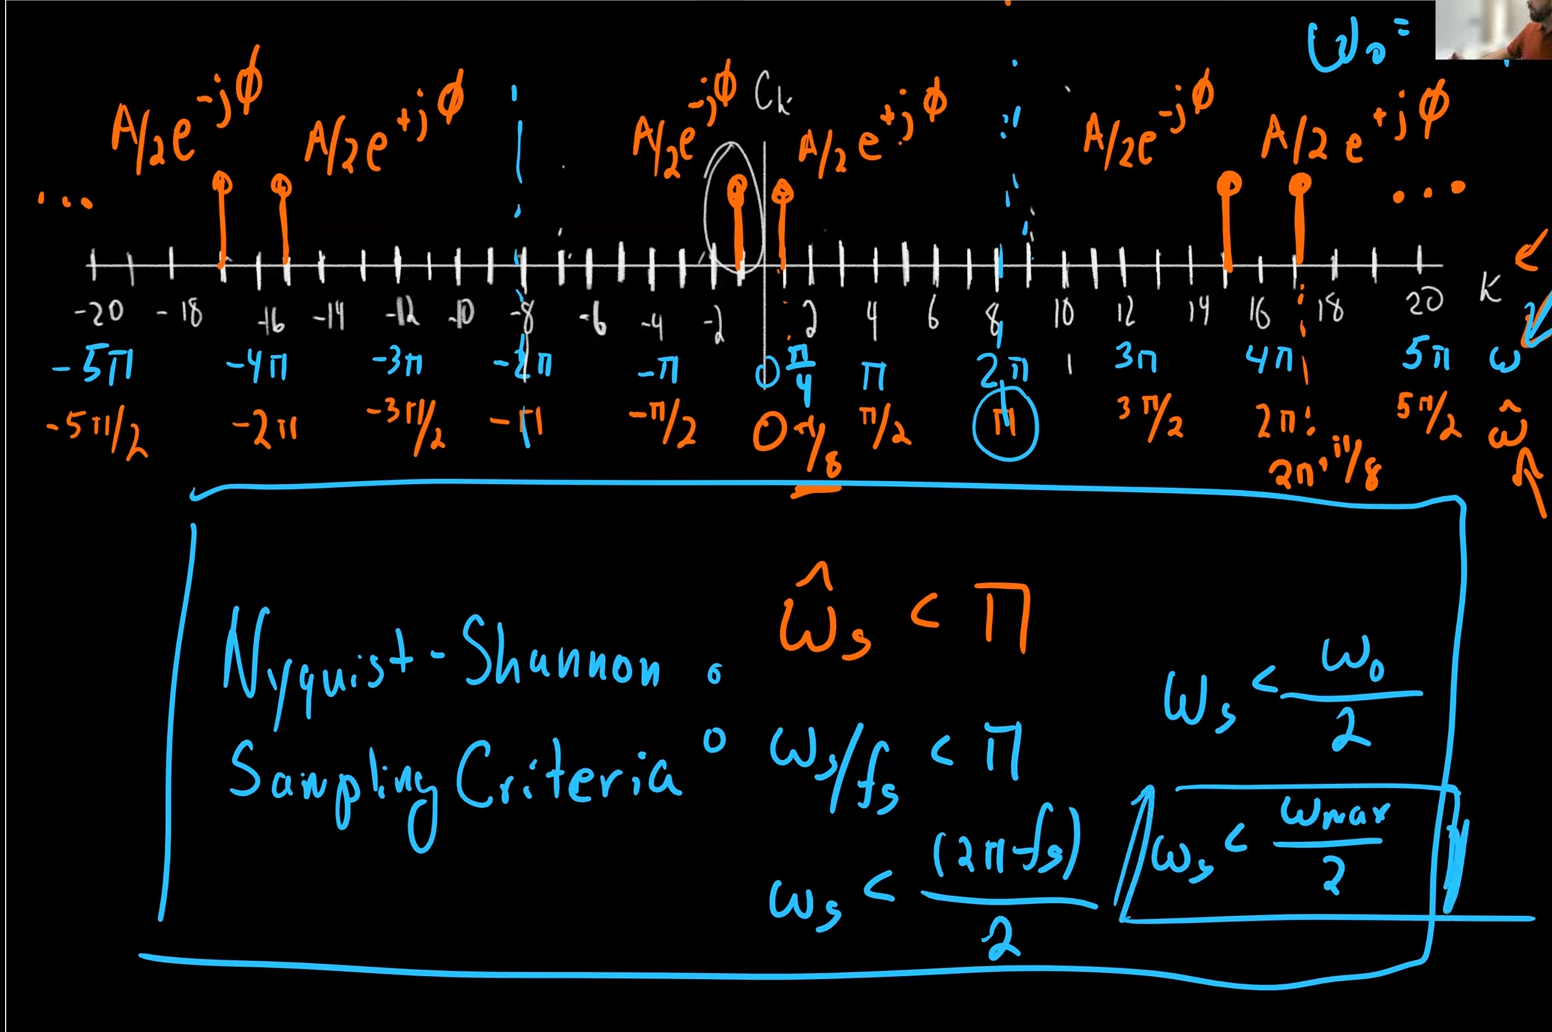 ω₀ =
A/2 e^-jϕ A/2 e^+jϕ A/2 e^-jϕ Ck A/2 e^+jϕ A/2 e^-jϕ A/2 e^+jϕ
... ...
-20 -18 -16 -14 -12 -10 -8 -6 -4 -2 2 4 6 8 10 12 14 16 18 20 K
-5π -4π -3π -2π -π 0 π/4 π 2π 3π 4π 5π ω
-5π/2 -2π -3π/2 -π -π/2 0 π/8 π/2 π 3π/2 2π 5π/2 ω̂
2π+π/8
ω̂s < π
Nyquist-Shannon : ωs < ω₀/2
Sampling Criteria ωs/fs < π
ωs < (2πfs)/2 ωs < ωmax/2